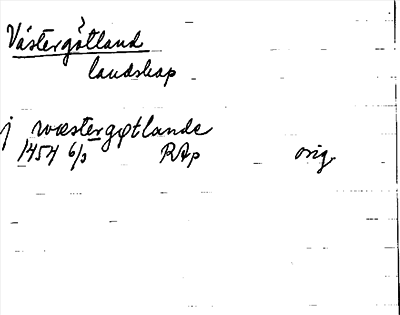 Västergötland
landskap
j wæstergøtlande
1454 6/3 RAp orig.